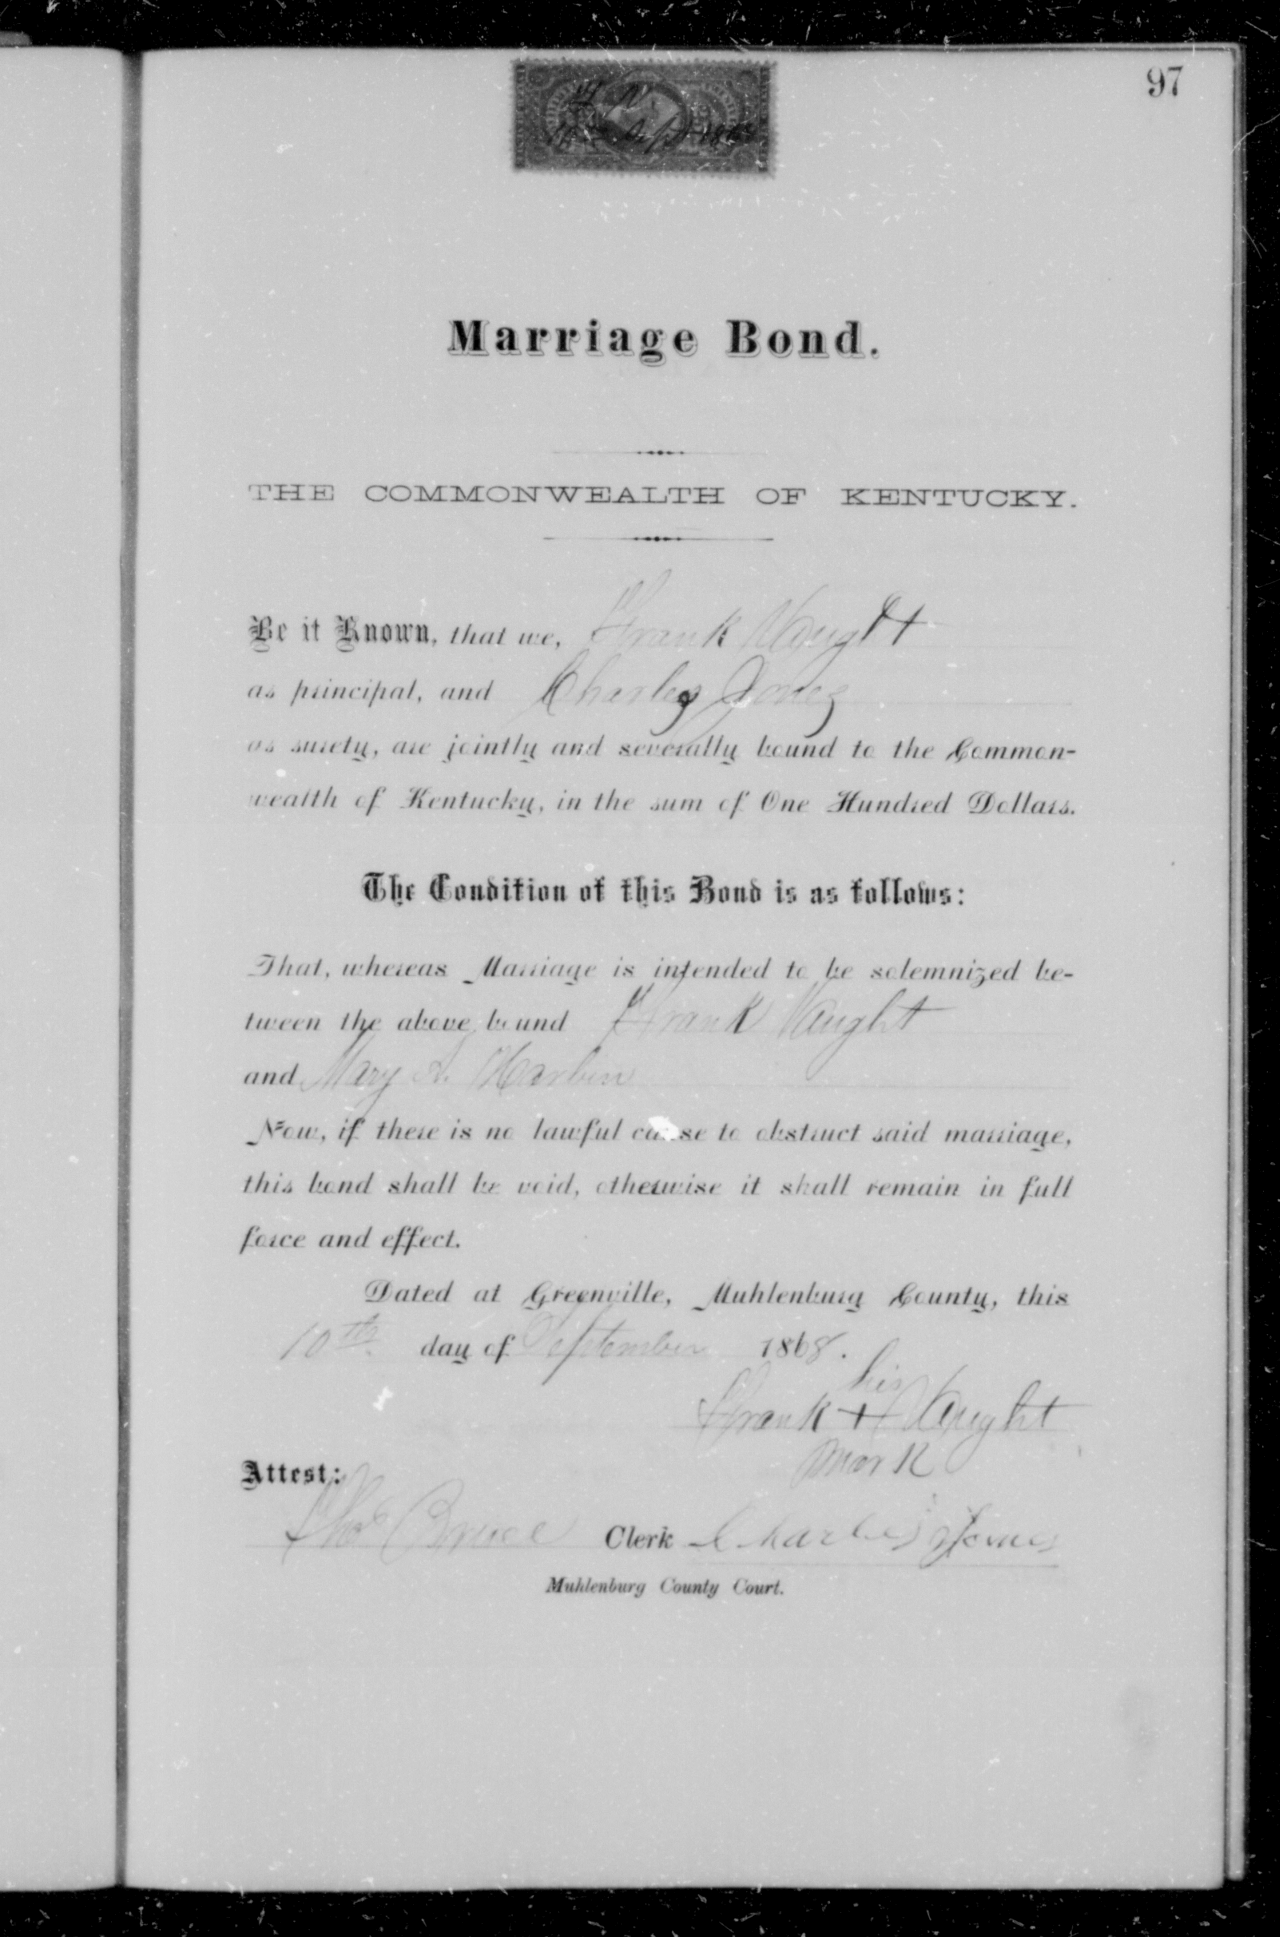 97
F. V.
10th Sept 1868
Marriage Bond.
THE COMMONWEALTH OF KENTUCKY.
Be it Known, that we, Frank Vaught
as principal, and Charles Jones
as surety, are jointly and severally bound to the Common-
wealth of Kentucky, in the sum of One Hundred Dollars.
The Condition of this Bond is as follows:
That, whereas Marriage is intended to be solemnized be-
tween the above bound Frank Vaught
and Mary A. Harbin
Now, if there is no lawful cause to obstruct said marriage,
this bond shall be void, otherwise it shall remain in full
force and effect.
Dated at Greenville, Muhlenburg County, this
10th day of September 1868.
his
Frank + Vaught
mark
Attest:
Thos Bruce Clerk Charles Jones
Muhlenburg County Court.